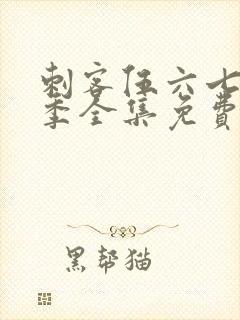 刺客伍六七
季全集免费
黑帮猫